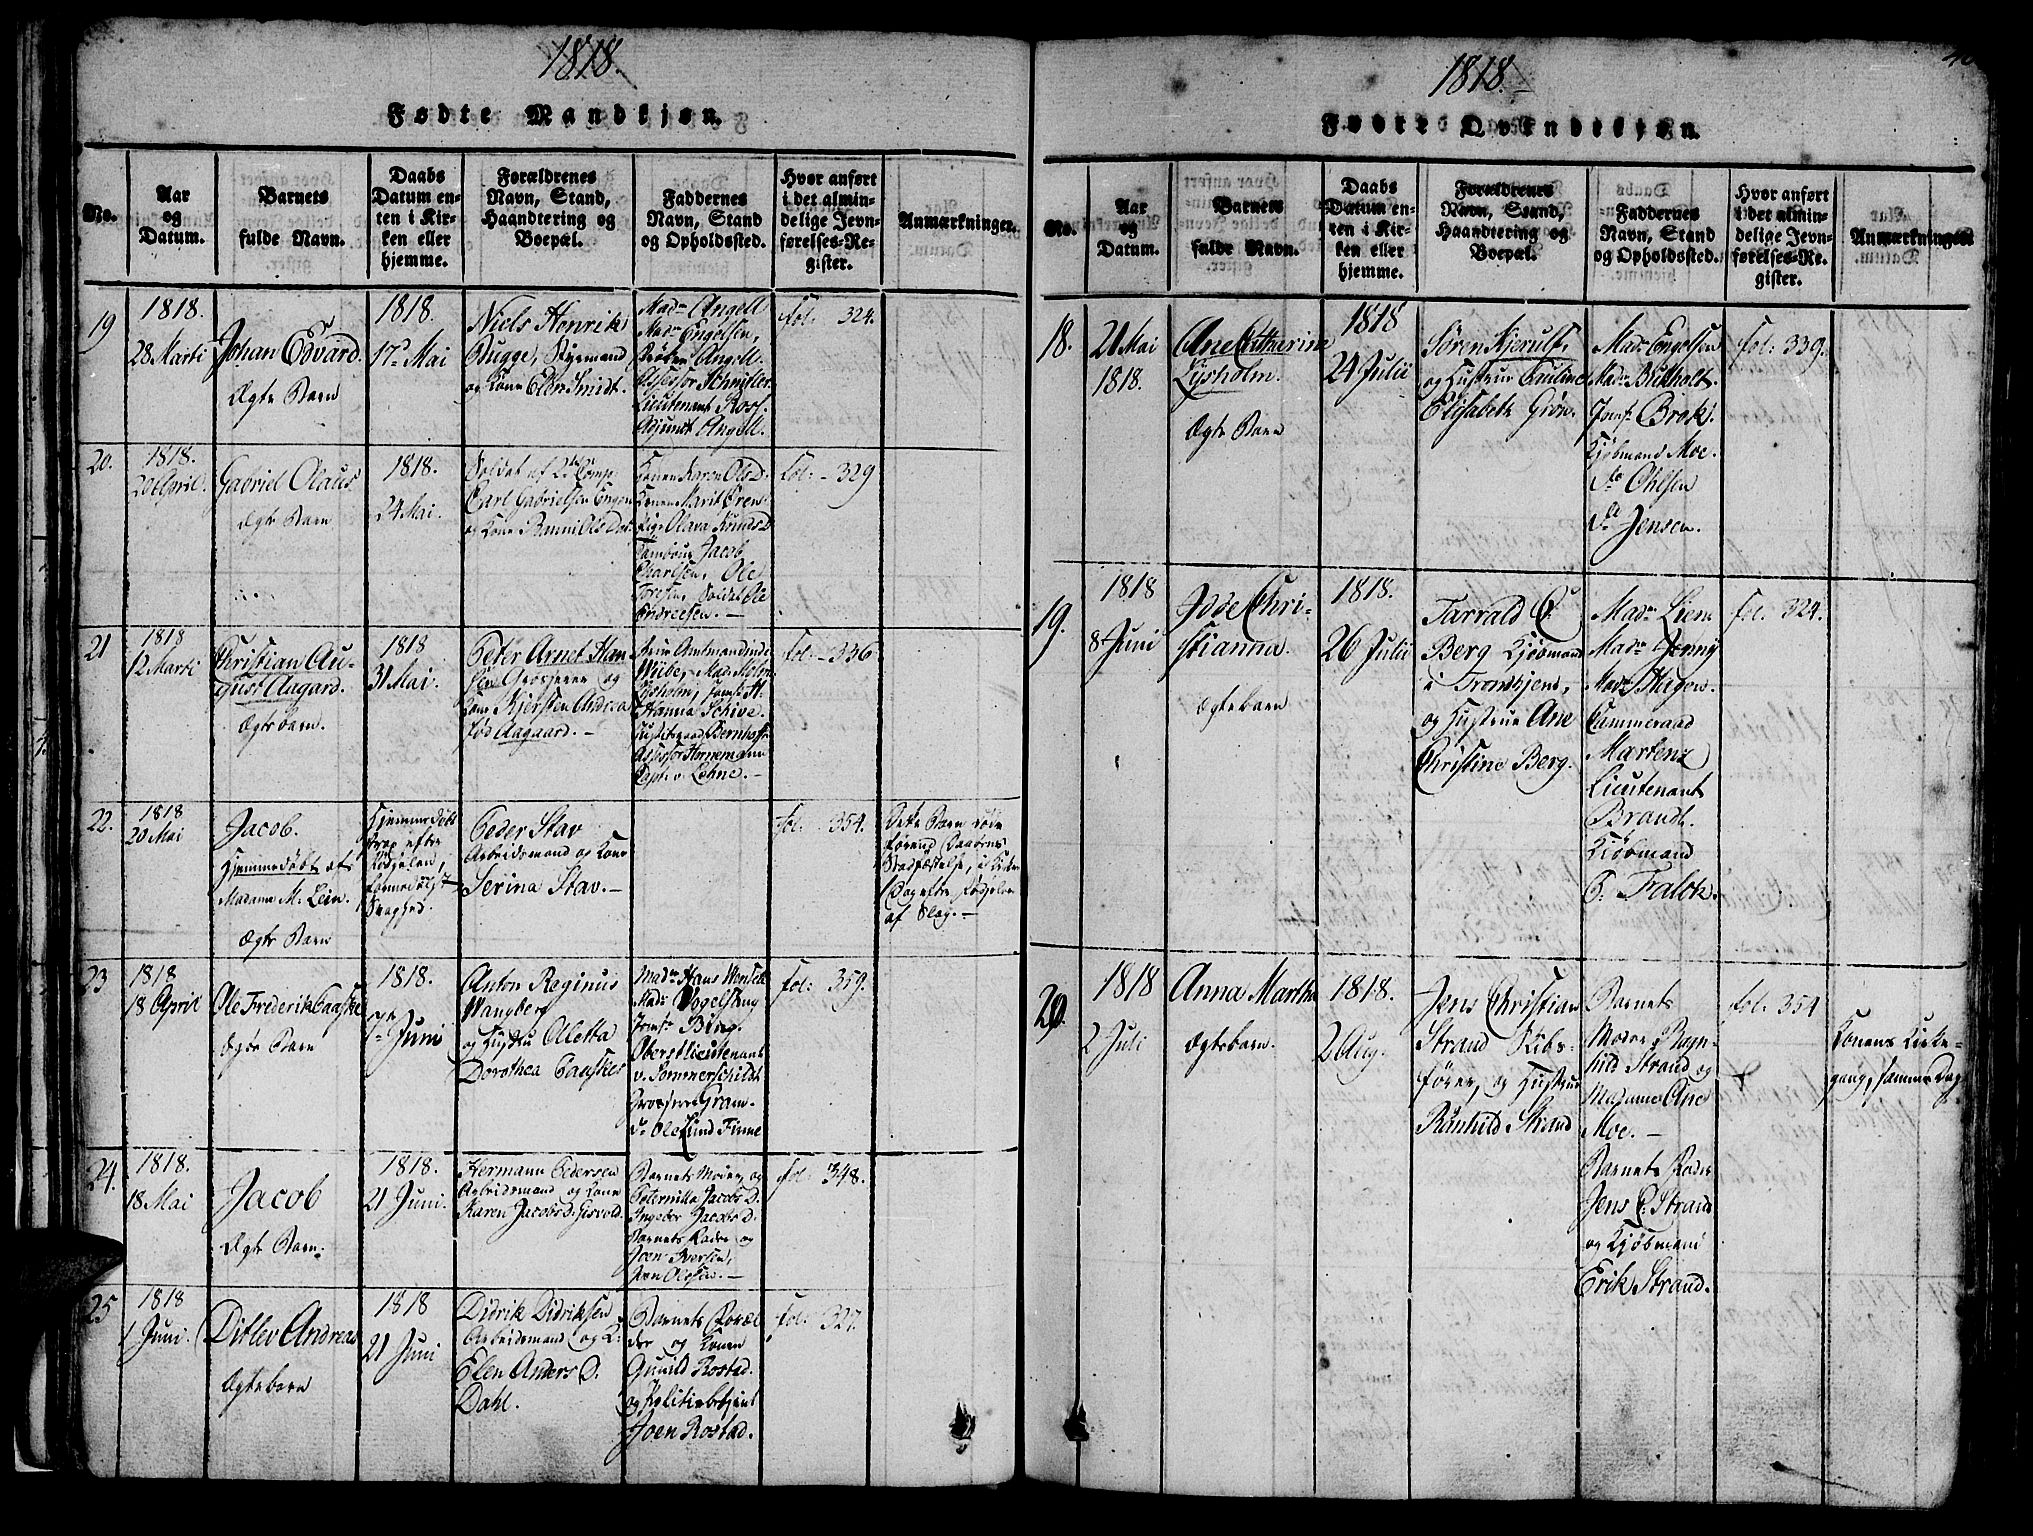 1818.
Fødte Mandkjøn.
No.
Aar
og
Datum.
Barnets
fulde Navn.
Daabs
Datum en-
ten i Kir-
ken eller
hjemme.
Forældrenes
Navn, Stand,
Haandtering og
Boepæl.
Faddernes
Navn, Stand
og Opholdssted.
Hvor anført
i det almin-
delige Jevn-
førelses-Re-
gister.
Anmærkninger.
19
1818.
28 Marti
Johan Edvard.
Ægte Barn
1818.
17de Mai
Niels Henrik
Bugge, Styrmand
og Kone Elen Smidt.
Madm Angell
Madm Engelsen,
Frøken Angell.
Assessor Schnitler
Lieutenant Ross.
Adjunct Angell.
fol: 324.
20.
1818.
20 April.
Gabriel Olaus
Ægte Barn
1818.
24 Mai.
Soldat af 2det Comp:
Carl Gabrielsen
og Kone Olsdr.
Konen Karen Olsd.
Konen Marit
Pige Olava Knudsd
Tambour Jacob
Charlsen, Ole
Soldat Ole
Andreesen. –
fol: – 329
21
1818
12 Marti
Christian Au-
gust Aagard.
Ægte barn.
1818
31 Mai.
Peter Arnet Han
sen Grosserer og
Kone Kjersten Andrea
fød Aagaard. –
Amtmandinde
Wibe, Mad.
Lysholm, Jomf. H.
Hanna Schive.
Justitsraad Bernhoft
Assessor Hornemann
Capt. v Lehne. –
fol: – 336
22.
1818
20 Mai
Jacob.
Hjemmedøbt af
Madame M. Lein.
Ægte Barn
Hjemmedøbt
strax efter
Fødselen,
formedelst
Svaghed.
Peder Stav
Arbeidsmand og Kone
Serina Stav. –
fol: 354.
Dette Barn døde
førend Daabens
Stadfæstelse,
Dag efter Fødselen
af Slag. –
23
1818
18 April
Ole Frederik Paaske
Ægte Barn
1818.
7de Juni
Anton Reginus
Wangberg
og Hustru Aletta
Dorothea Paaske
Madm Hans Wensell
Madm Vogelsang
Jomfr Bing.
Oberstlieutenant
v. Sommerschildt
Grosserer Gram.
do Ole Lund Finne
fol: 359.
24.
1818.
18 Mai
Jacob
Ægte Barn.
1818.
21 Juni.
Hermann Pedersen
Arbeidsmand og Kone
Karen Jacobsd. Gisvold.
Barnets Moder, og
Peternilla Jacobs D.
Ingebor Jacobs D.
Barnets Fader og
Joen Iversen,
Jon Olesen. –
fol: 348.
25
1818
1 Juni.
Ditlev Andreas
Ægte barn
1818
21 Juni
Didrik Didriksen
Arbeidsmand og K:
Elen Anders D.
Dahl.
Barnets Foræl
dre og Konen
Gunild Rostad.
og Politiebetjent
Joen Rostad.
fol: 327.
1818.
Fødte Qvindekjøn.
No.
Aar
og
Datum.
Barnets
fulde Navn.
Daabs
Datum en-
ten i Kir-
ken eller
hjemme.
Forældrenes
Navn, Stand,
Haandtering og
Boepæl.
Faddernes
Navn, Stand
og Opholdssted.
Hvor anført
i det almin-
delige Jevn-
førelses-Re-
gister.
Anmærkninger.
18.
21 Mai
1818.
Ane Catharine
Lysholm.
Ægte Barn
1818
24 Julii
Søren Kjerulf,
og Hustrue Pauline
Elisabeth Grøn.
Madm Engelsen
Madm Buchholt.
Jomf: Brok.
Kjøbmand Moe.
do Ohlsen
do Jensen.
fol: 339.
19.
1818
8 Juni
Idde Chri-
stianna.
Ægtebarn
1818.
26 Julii
Tarrald C.
Berg Kjøbmand
i Trondhjem,
og Hustrue Ane
Christine Berg.
Madm Lien
Madm Jenny
Madm Hagen.
Cammeraad
Martens
Lieutenant
Brandt.
Kjøbmand
C. Falck.
fol: 324.
20.
1818
2 Juli
Anna Martha
Ægtebarn.
1818.
2 Aug.
Jens Christian
Strand Skibs-
fører, og Hustrue
Ranhild Strand
Barnets
Moder, Ragn-
hild Strand og
Madame Ane
Moe. –
Barnets Fader
Jens C. Strand
og Kjøbmand
Erik Strand.
fol: 354
Konens Kirke-
gang, samme Dag